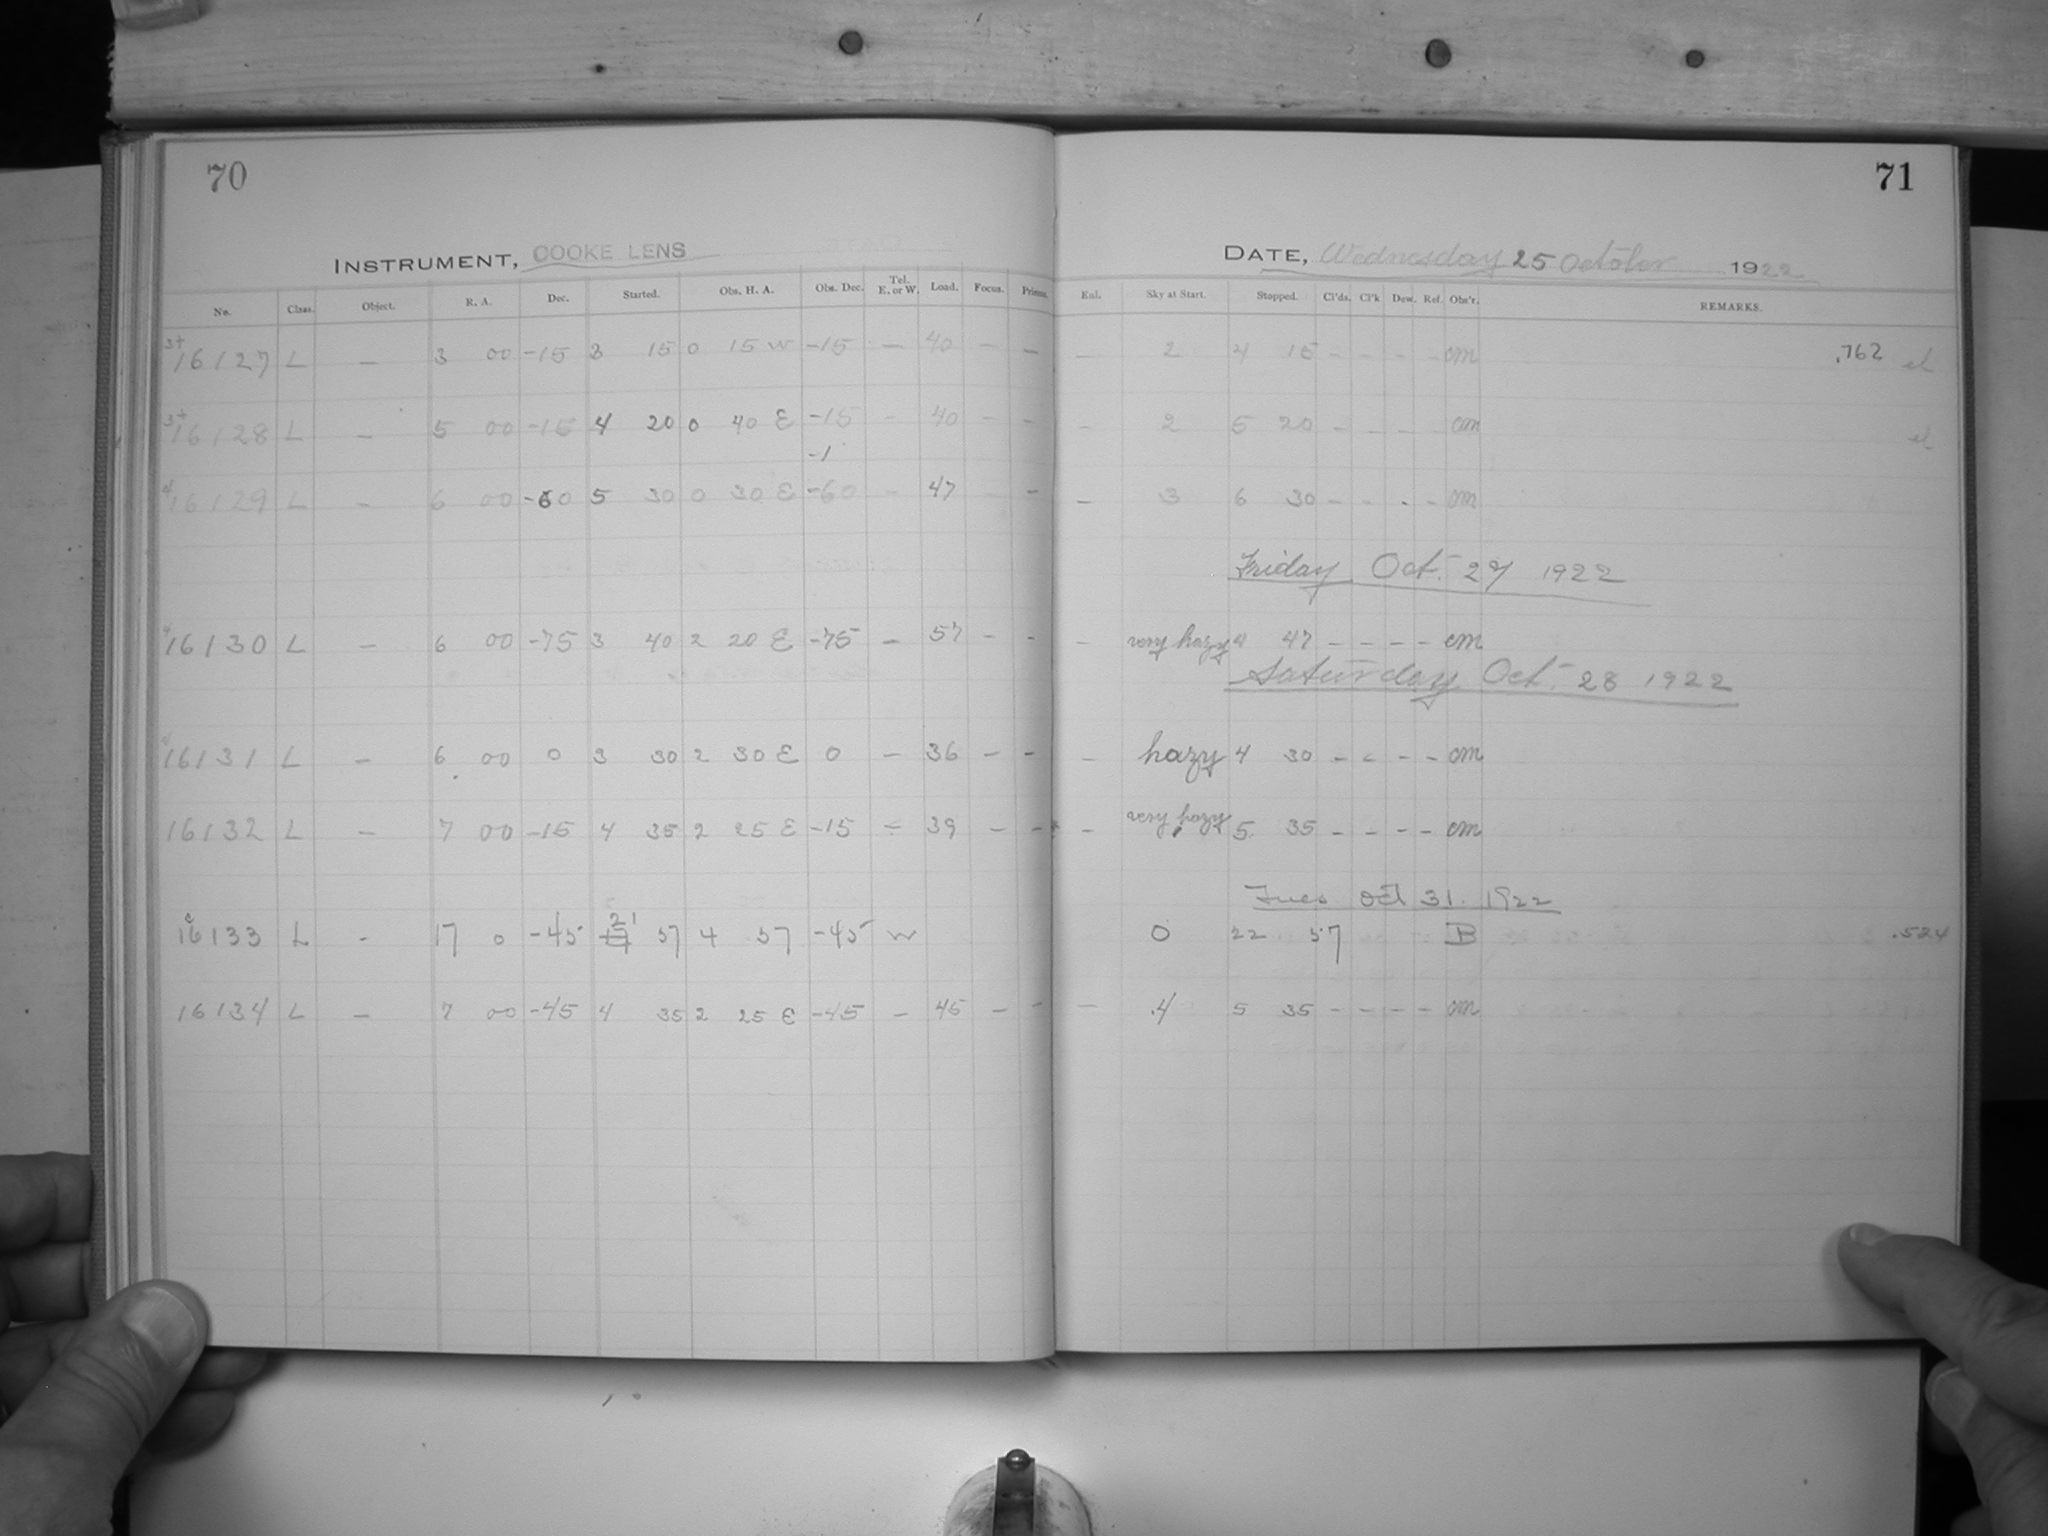 70
71
INSTRUMENT, COOKE LENS
DATE, Wednesday 25 October 1922
No. Class. Object. R. A. Dec. Started. Obs. H. A. Obs. Dec. Tel. E. or W. Load. Focus. Prisms. Enl. Sky at Start. Stopped. Cl'ds. Cl'k Dew. Ref. Obs'r. REMARKS.
3+
16127 L – 3 00 -15 3 15 0 15 W -15 – 40 – – – 2 4 15 – – – – cm .762
3+
16128 L – 5 00 -15 4 20 0 40 E -15 – 40 – – – 2 5 20 – – – cm
-1
16129 L – 6 00 -60 5 30 0 30 E -60 – 47 – – 3 6 30 – – – – cm
Friday Oct. 27 1922
16130 L – 6 00 -75 3 40 2 20 E -75 – 57 – – – very hazy 4 47 – – – – cm
Saturday Oct. 28 1922
16131 L – 6 00 0 3 30 2 30 E 0 – 36 – – – hazy 4 30 – – – – cm
16132 L – 7 00 -15 4 35 2 25 E -15 – 39 – – – very hazy 5 35 – – – – cm
Tues Oct 31. 1922
16133 L – 17 0 -45 21 57 4 57 -45 W 0 22 57 B .524
16134 L – 7 00 -45 4 35 2 25 E -45 – 45 – – – .4 5 35 – – – – cm